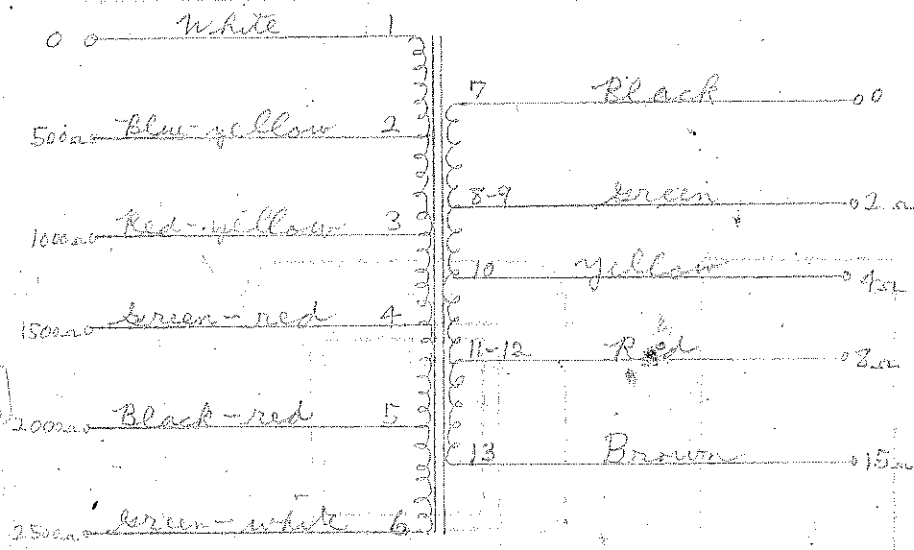 0 White 1
500Ω Blue-yellow 2
1000Ω Red-yellow 3
1500Ω Green-red 4
2000Ω Black-red 5
2500Ω Green-white 6
7 Black 0
8-9 Green 2Ω
10 Yellow 4Ω
11-12 Red 8Ω
13 Brown 15Ω